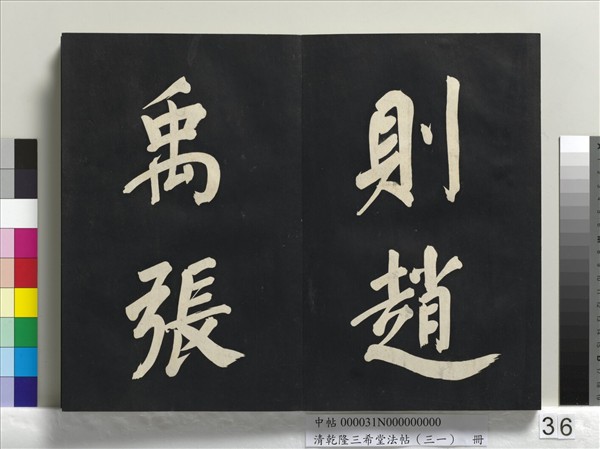 則趙
禹張
中帖 000031N000000000
清乾隆三希堂法帖（三一） 冊
36